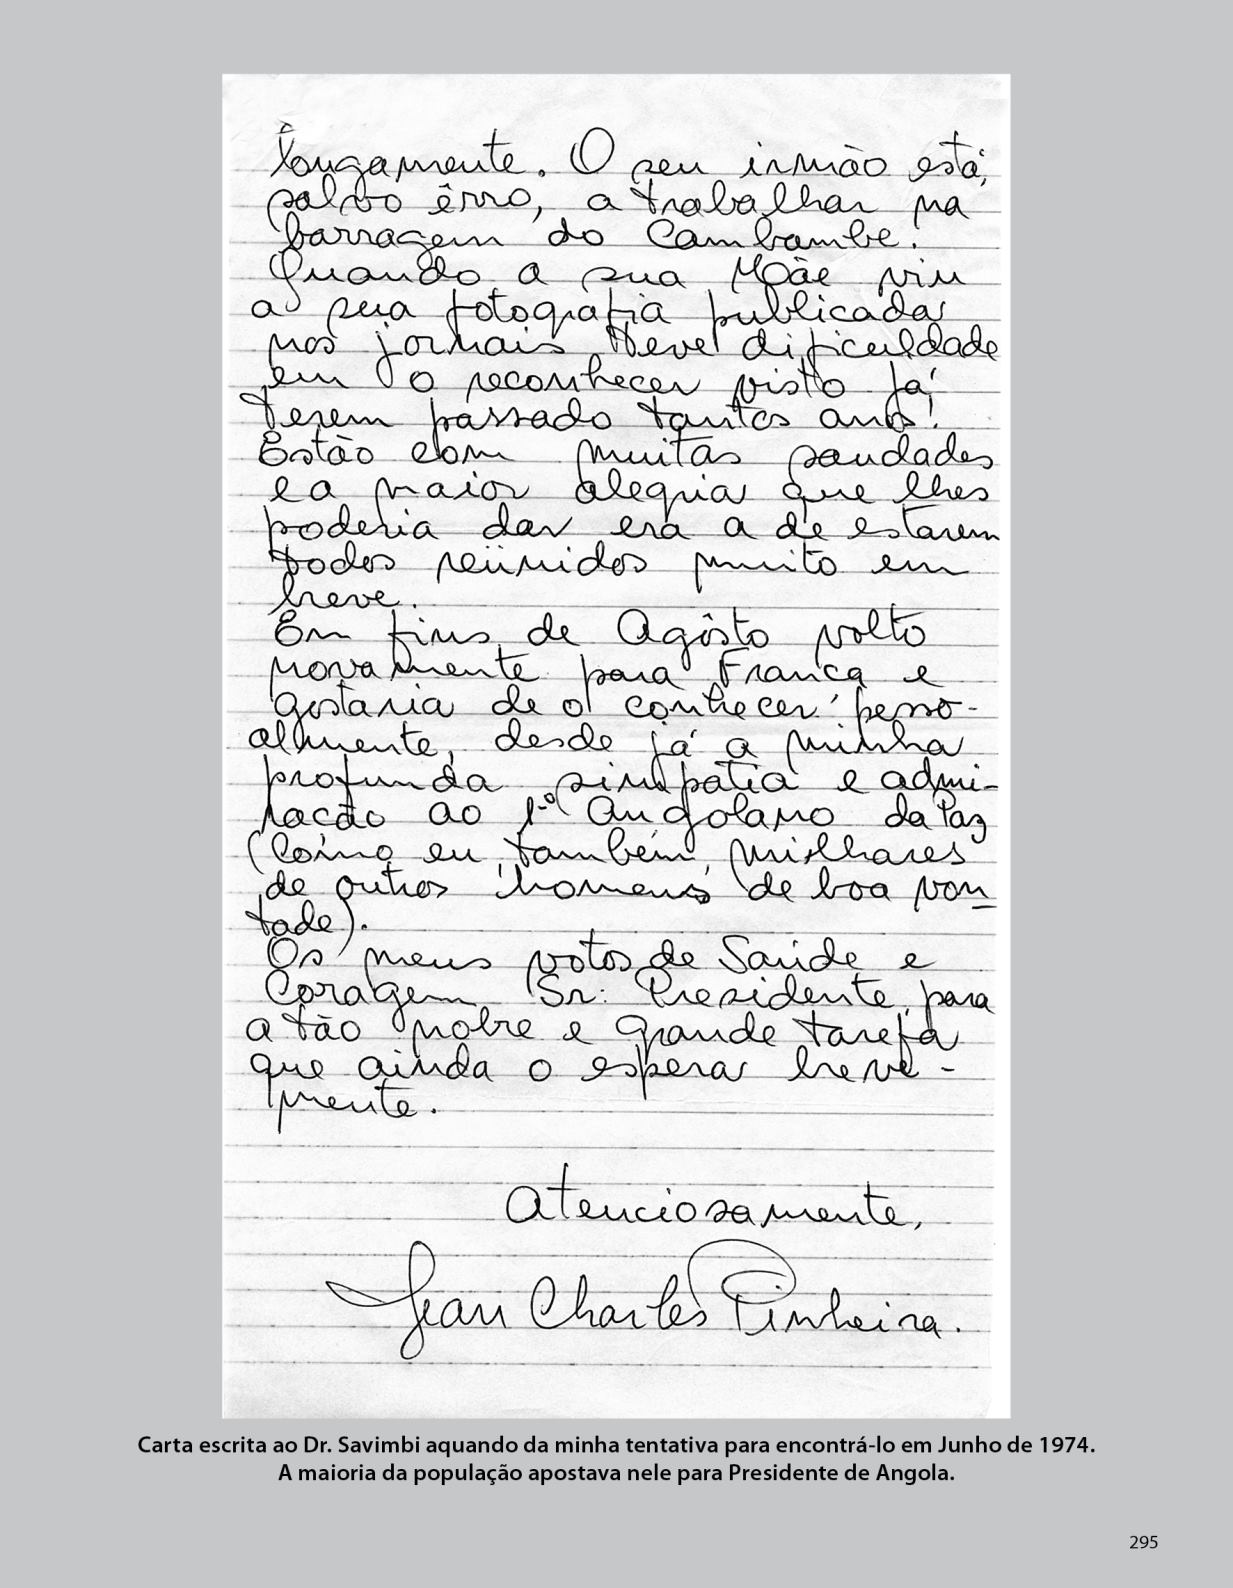 longamente. O seu irmão está,
salvo êrro, a trabalhar na
barragem do Cambambe.
Quando a sua Mãe viu
a sua fotografia publicada
nos jornais teve dificuldade
em o reconhecer visto já
terem passado tantos anos!
Estão com muitas saudades
e a maior alegria que lhes
poderia dar era a de estarem
todos reünidos muito em
breve.
Em fins de Agôsto volto
novamente para França e
gostaria de o conhecer pesso-
almente, desde já a minha
profunda simpatia e admi-
ração ao 1.º Angolano da Paz
(Como eu, também, milhares
de outros homens de boa von-
tade).
Os meus votos de Saúde e
Coragem Sr. Presidente, para
a tão nobre e grande tarefa
que ainda o espera breve-
mente.
Atenciosamente,
Jean Charles Pinheira.
Carta escrita ao Dr. Savimbi aquando da minha tentativa para encontrá-lo em Junho de 1974.
A maioria da população apostava nele para Presidente de Angola.
295